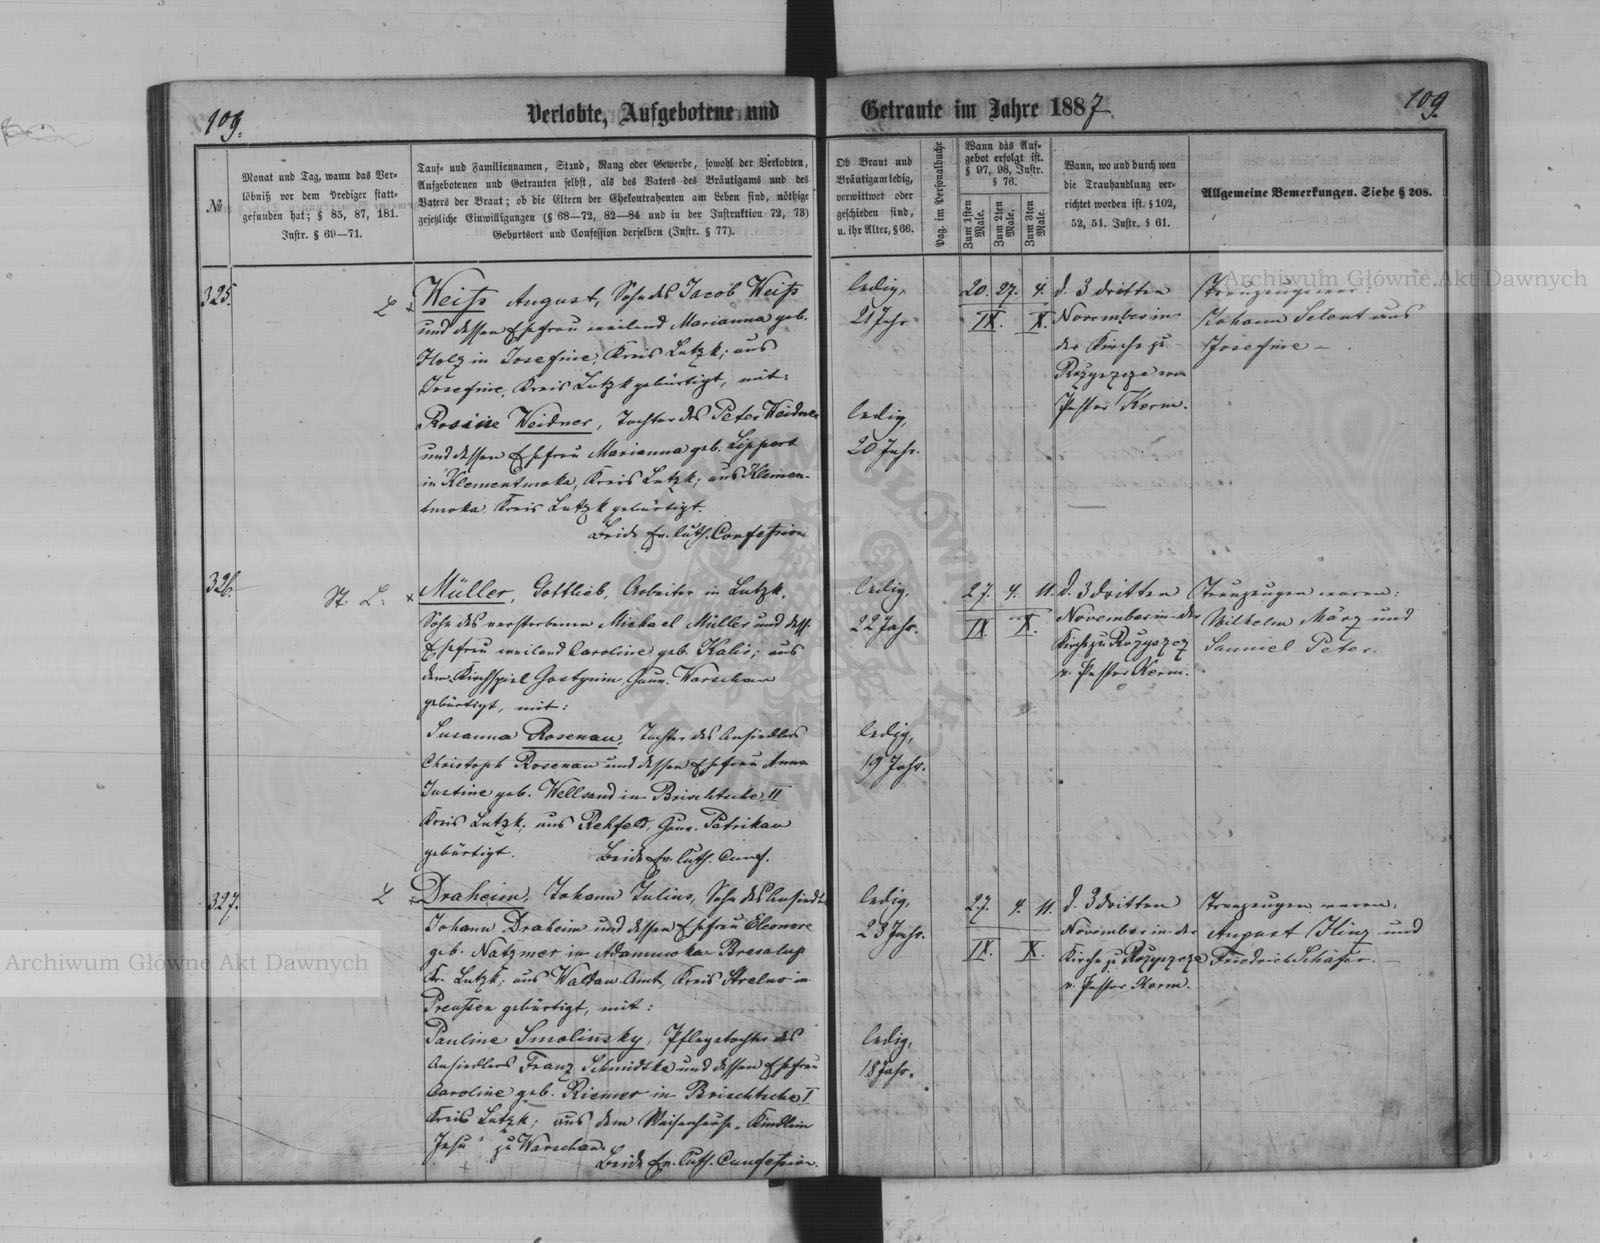 109.
Verlobte, Aufgebotene und
Getraute im Jahre 1887.
109.
№
Monat und Tag, wann das Ver-
löbniß vor dem Prediger statt-
gefunden hat; § 85, 87, 181.
Instr. § 69—71.
Tauf- und Familiennamen, Stand, Rang oder Gewerbe, sowohl der Verlobten,
Aufgebotenen und Getrauten selbst, als des Vaters des Bräutigams und des
Vaters der Braut; ob die Eltern der Ehekontrahenten am Leben sind, nöthige
gesetzliche Einwilligungen (§ 68—72, 82—84 und in der Instruktion 72, 73)
Geburtsort und Confession derselben (Instr. § 77).
Ob Braut und
Bräutigam ledig,
verwittwet oder
geschieden sind,
u. ihr Alter, § 66.
Pag. im Personalbuche
Wann das Auf-
gebot erfolgt ist.
§ 97, 98, Instr.
§ 76.
Zum 1sten Male.
Zum 2ten Male.
Zum 3ten Male.
Wann, wo und durch wen
die Trauhandlung ver-
richtet worden ist. § 102,
52, 51. Instr. § 61.
Allgemeine Bemerkungen. Siehe § 208.
325.
L
Weiß August, Sohn des Jacob Weiß
und dessen Ehefrau weiland Marianna geb.
Holz in Josefine, Kreis Lutzk; aus
Josefine, Kreis Lutzk gebürtigt, mit:
Rosine Weidner, Tochter des Peter Weidner
und dessen Ehefrau Marianna geb. Lippert
in Klementinowka, Kreis Lutzk; aus Klemen-
tinowka, Kreis Lutzk gebürtigt.
Beide Ev. Luth. Confession
ledig,
21 Jahr
ledig,
20 Jahr.
20. 27. 4.
IX. X.
d. 3 dritten
November in
der Kirche zu
Rozyszcze von
Pastor Kerm.
Trauzeugen waren:
Johann Selent aus
Josefine —
326.
St. L.
Müller, Gottlieb, Arbeiter in Lutzk,
Sohn des verstorbenen Michael Müller und dess.
Ehefrau weiland Caroline geb. Kalis; aus
dem Kirchspiel Gostynin, Gouv. Warschau
gebürtigt, mit:
Susanna Rosenau, Tochter des Ansiedlers
Christoph Rosenau und dessen Ehefrau Anna
Justine geb. Wellsand in Brischtsche II
Kreis Lutzk; aus Rehfeld, Gouv. Petrikau
gebürtigt. Beide Ev. Luth. Conf.
ledig,
22 Jahr.
ledig,
19 Jahr.
27. 4. 11.
IX. X.
d. 3 dritten
November in der
Kirche zu Rozyszcz
v. Pastor Kerm.
Trauzeugen waren:
Wilhelm März und
Samuel Peter.
327.
L
Draheim, Johann Julius, Sohn des Ansiedl.
Johann Draheim und dessen Ehefrau Eleonore
geb. Natzmer in Adamowka
Kr. Lutzk; aus Waldau Amt, Kreis Strelno in
Preußen gebürtigt, mit:
Pauline Smolinsky, Pflegetochter des
Ansiedlers Franz Schmidtke und dessen Ehefrau
Caroline geb. Riemer in Brischtsche I
Kreis Lutzk; aus dem Waisenhause „Kindlein
Jesu“ zu Warschau.
Beide Ev. Luth. Confession.
ledig,
23 Jahr.
ledig,
18 Jahr.
27. 4. 11.
IX. X.
d. 3 dritten
November in der
Kirche zu Rozyszcze
v. Pastor Kerm.
Trauzeugen waren:
August Hinz und
Friedrich Schäfer. —
Archiwum Główne Akt Dawnych
Archiwum Główne Akt Dawnych